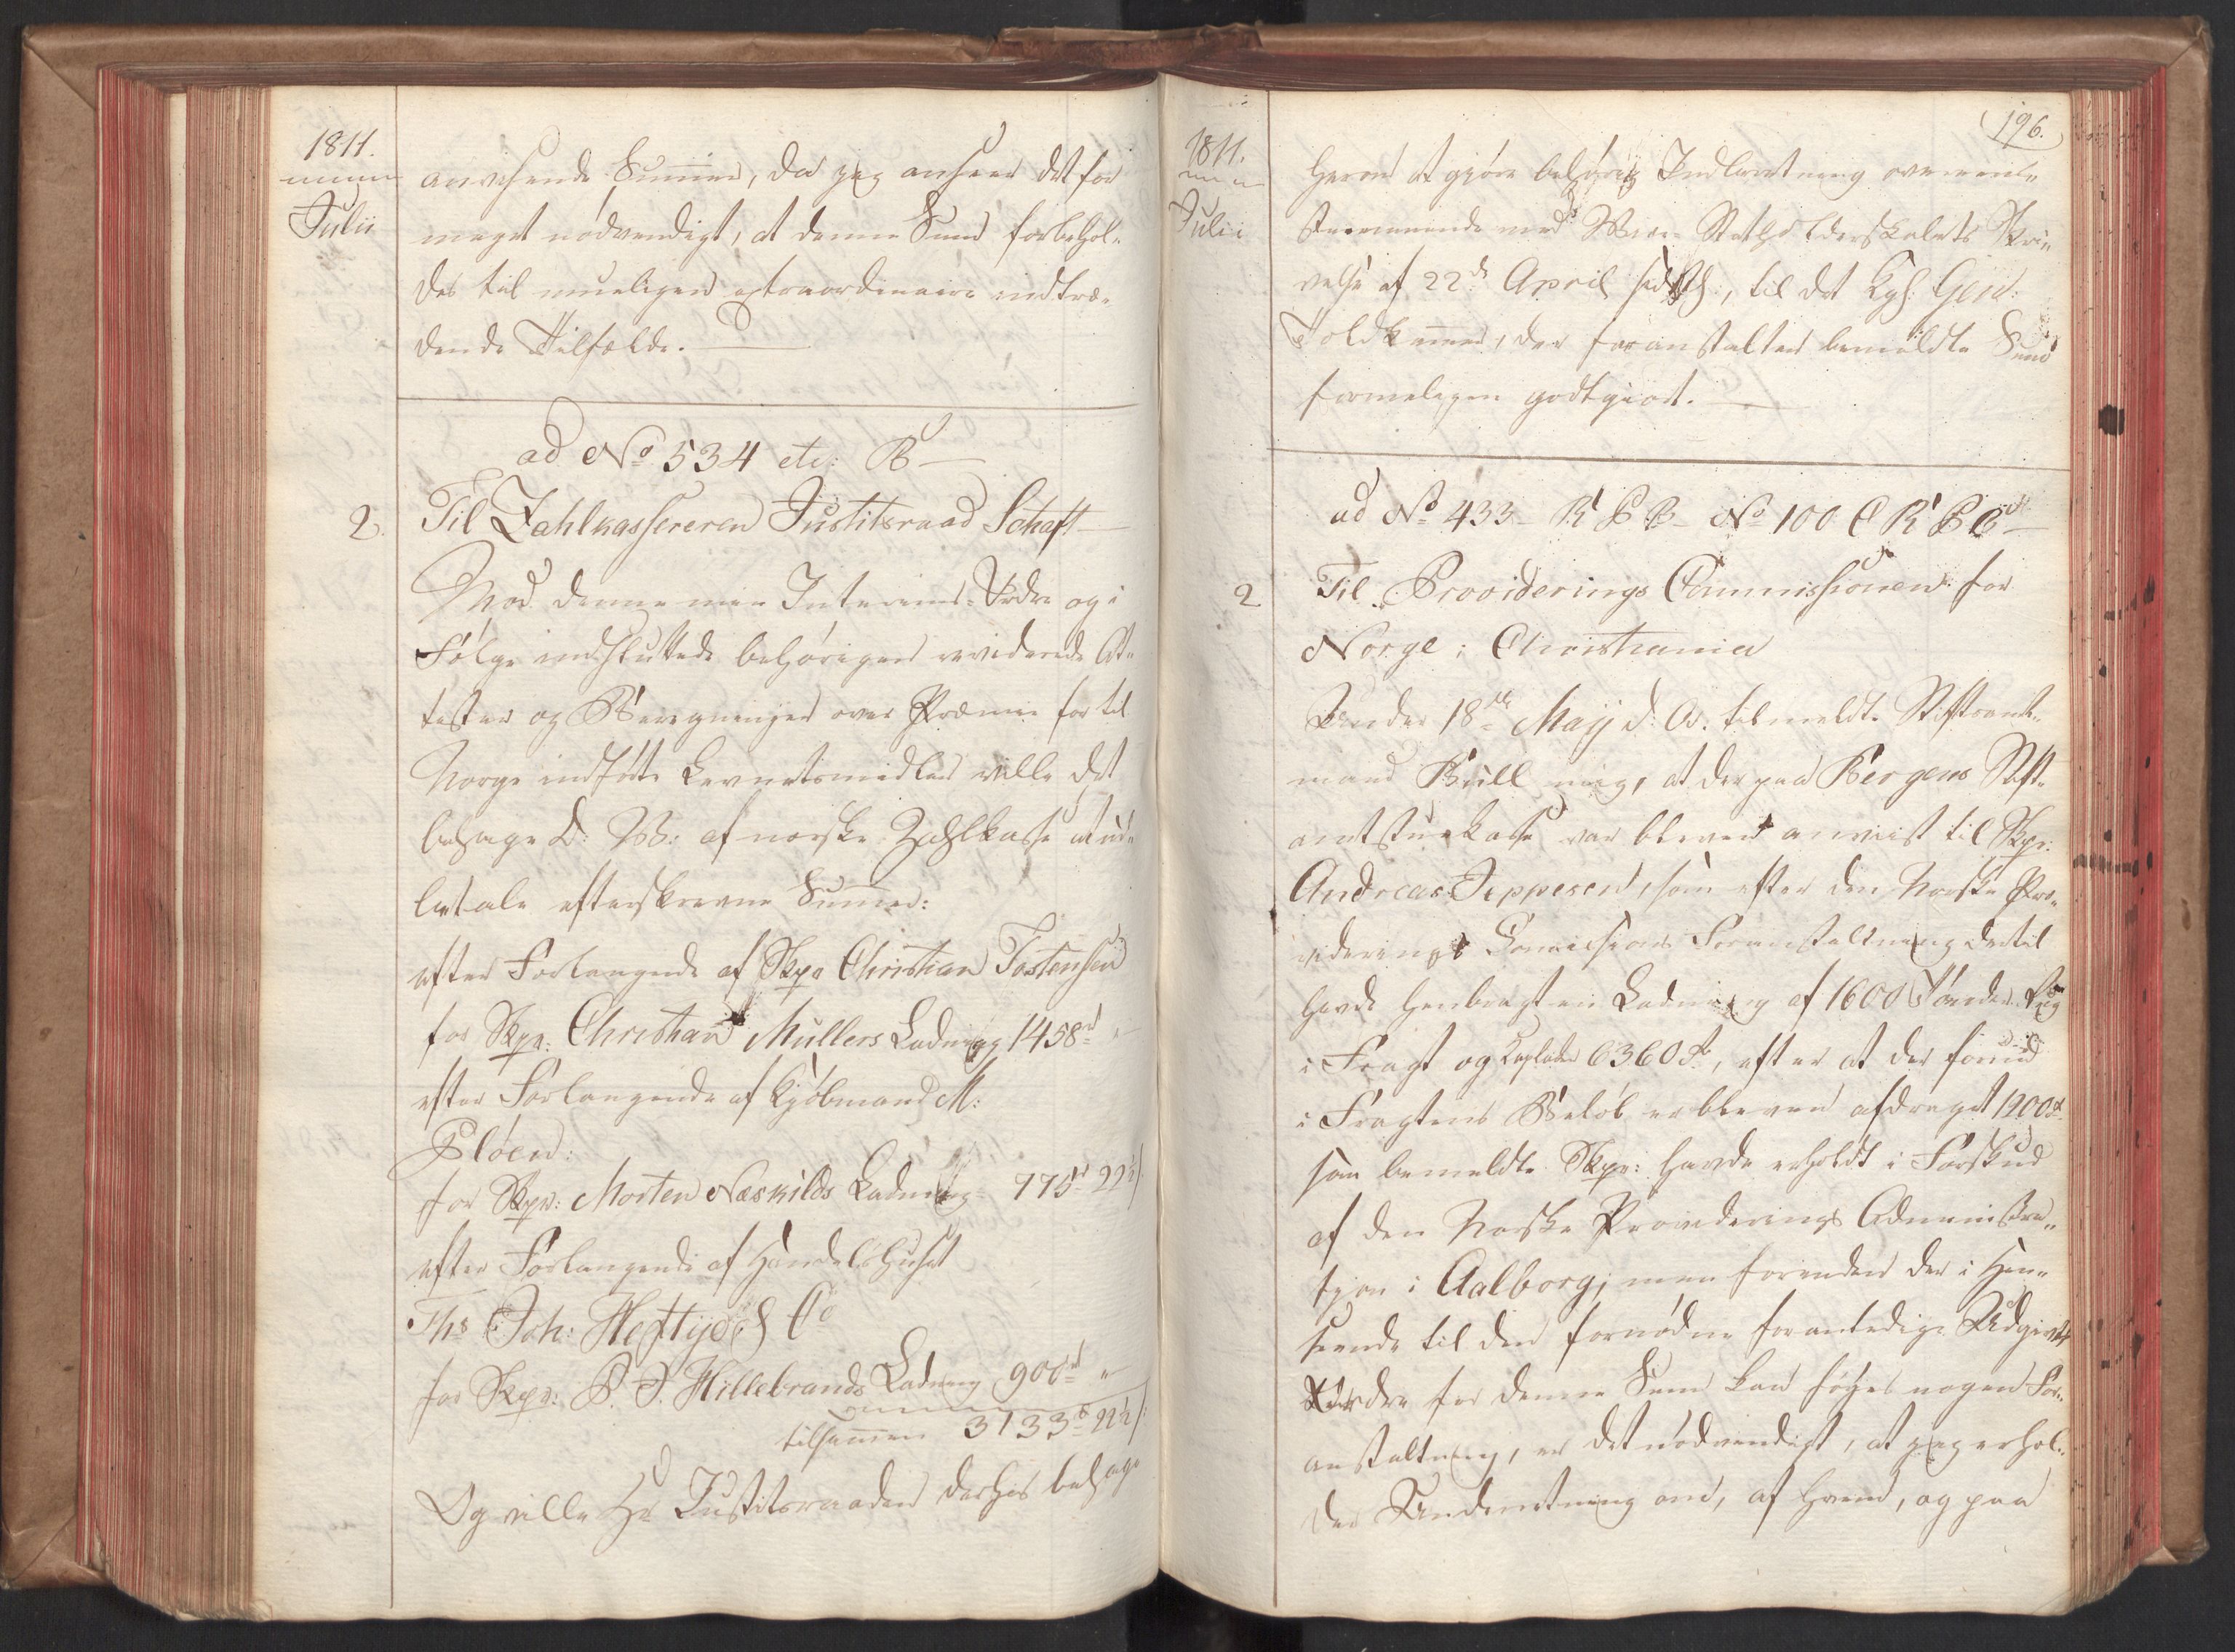 1811.
Julii
anvisende Summer, da jeg anseer det for
meget nödvendigt, at denne Sum forbehol¬
des til mueligen extraordinaire indtræ¬
dende Tilfælde.
ad No 534 etc: B
2.
Til Zahlkassereren Justitsraad Schaft
Mod denne min Interims-Ordre og i
Følge indsluttede behörigen reviderede At¬
tester og Beregninger over Præmie for til
Norge indförte Levnetsmidler ville det
behage D: W: af norske Zahlkasse at ud¬
betale efterskrevne Summer:
efter Forlangende af Skpr Christian Tostensen
for Skpr: Christian Mullers Ladning 1458rd "
efter Forlangende af Kjöbmand M:
Pløen:
for Skpr: Morten Næskilds Ladning 775rd 22½
efter Forlangende af Handelshuset
Ths Joh: Heftye & Co
for Skpr: P. J. Hillebrands Ladning 900rd "
tilsammen 3133rd 22½
Og ville Hr Justitsraaden derhos behage
1811.
Julii
196.
herom at gjöre behörig Indberetning overeens¬
stemmende med Vice-Statholderskabets Skri¬
velse af 22de April sidstl:, til det Kgl: Genl:
Toldkammer, der foranstalter bemeldte Sum
formeligen godtgiort.
ad No 433 R P B No 100 C R P B
2
Til Providerings Commissionen for
Norge i Christiania
Under 18de Maij d: A: tilmeldte Stiftamt¬
mand Bull mig, at der paa Bergens Stift¬
amtstuekasse var bleven anviist til Skpr:
Andreas Jeppesen, som efter den Norske Pro¬
viderings Commissions Foranstaltning dertil
havde henbragt en Ladning af 1600 Tönder Rug
i Fragt og Kaplaken 6360rd, efter at der forud
i Fragtens Belöb er bleven afdraget 1200rd
som bemeldte Skpr: havde erholdt i Forskud
af den Norske Providerings Administra¬
tion i Aalborg; men forinden der i Hen¬
seende til den fornödne foranledige Udgivts
Ordre for denne Sum kan föjes nogen For¬
anstaltning, er det nödvendigt, at jeg erhol¬
der Underretning om, af hvem, og paa